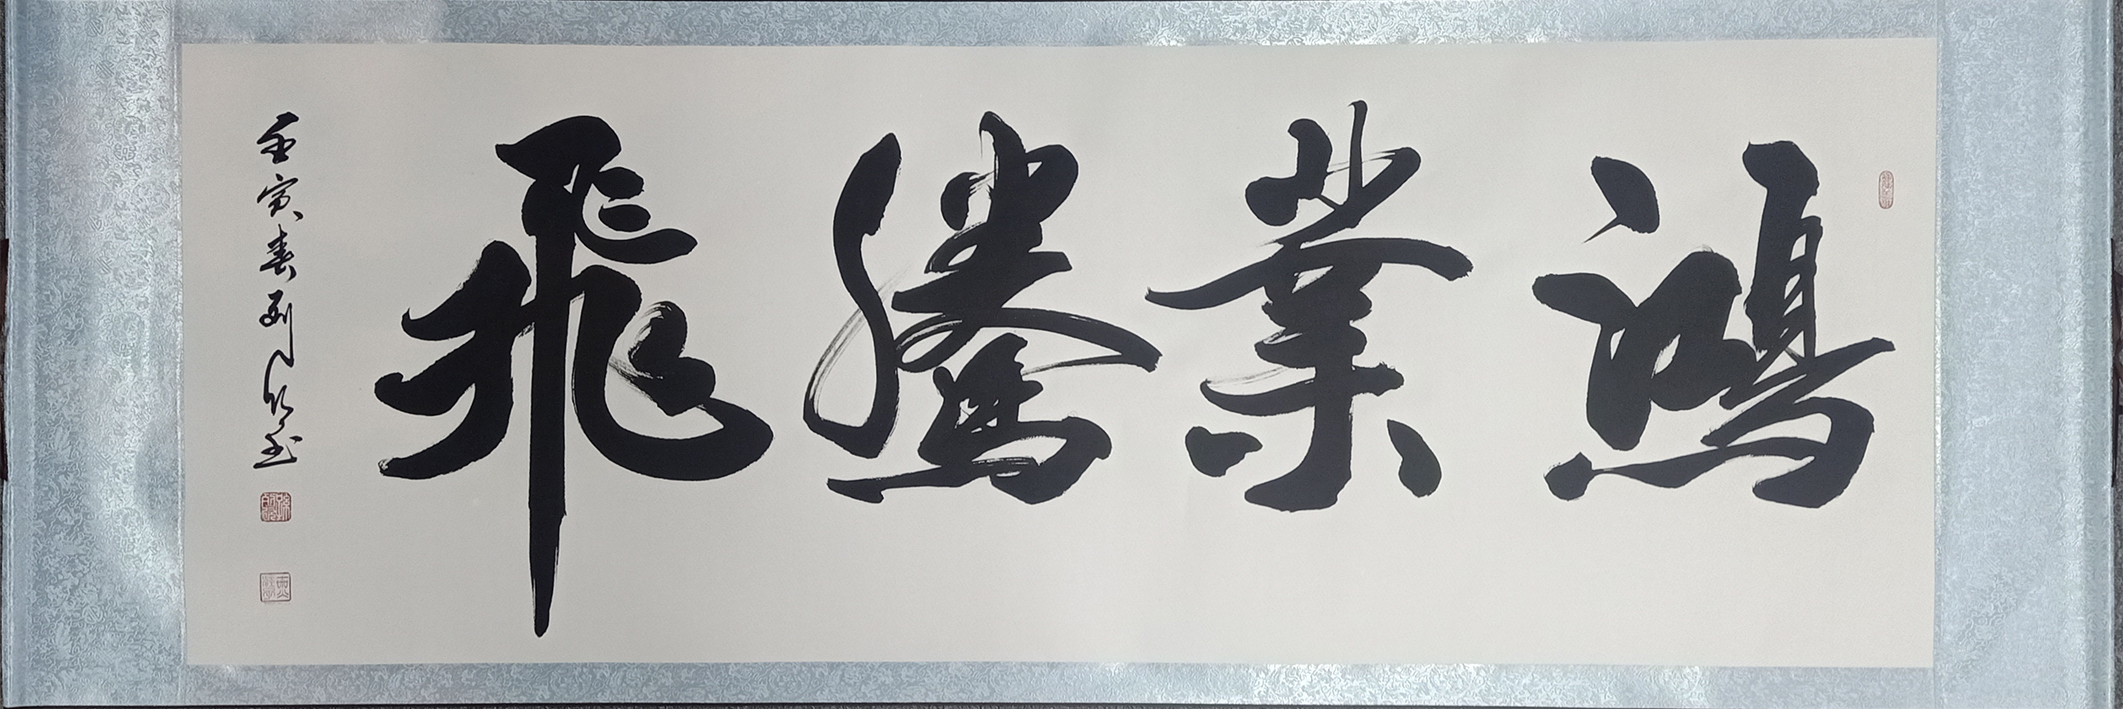 鴻業騰飛
壬寅春劉